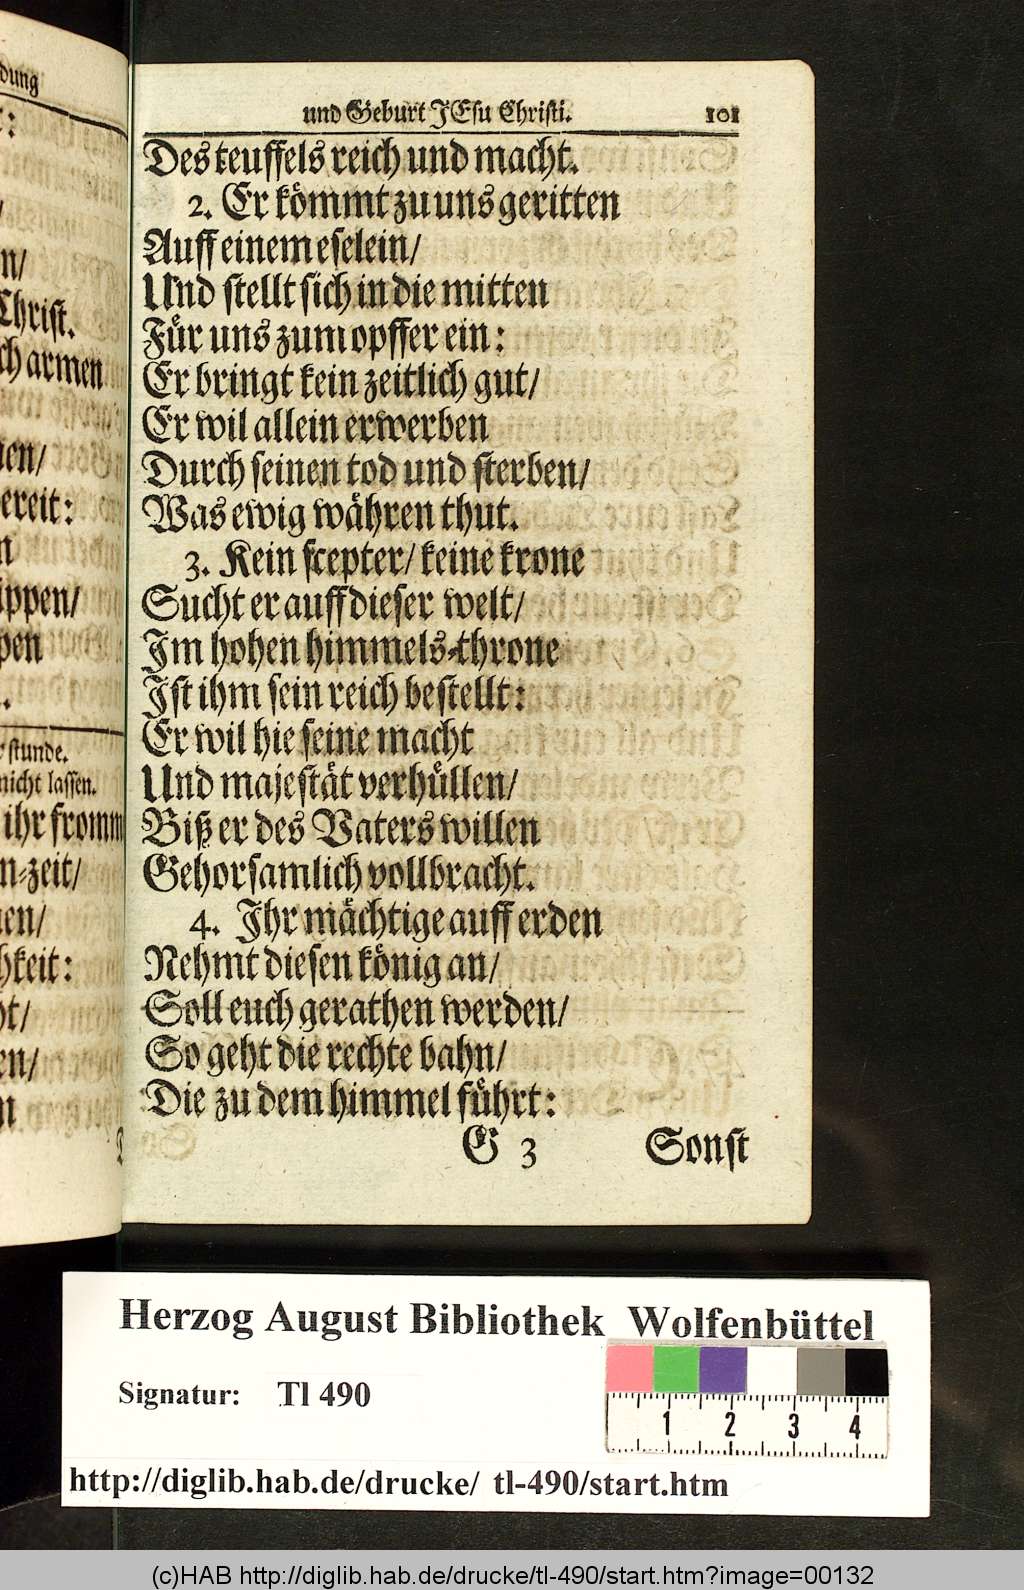 dung
n/
Christ.
ch armen
en/
ereit:
n
ippen/
pen
stunde.
nicht lassen.
ihr fromm
n-zeit/
en/
hkeit:
t/
en/
n
und Geburt JEsu Christi. 101
Des teuffels reich und macht.
2. Er kömmt zu uns geritten
Auff einem eselein/
Und stellt sich in die mitten
Für uns zum opffer ein:
Er bringt kein zeitlich gut/
Er wil allein erwerben
Durch seinen tod und sterben/
Was ewig währen thut.
3. Kein scepter/ keine krone
Sucht er auff dieser welt/
Im hohen himmels-throne
Ist ihm sein reich bestellt:
Er wil hie seine macht
Und majestät verhüllen/
Biß er des Vaters willen
Gehorsamlich vollbracht.
4. Ihr mächtige auff erden
Nehmt diesen könig an/
Soll euch gerathen werden/
So geht die rechte bahn/
Die zu dem himmel führt:
G 3 Sonst
Herzog August Bibliothek Wolfenbüttel
Signatur: Tl 490
1 2 3 4
http://diglib.hab.de/drucke/ tl-490/start.htm
(c)HAB http://diglib.hab.de/drucke/tl-490/start.htm?image=00132